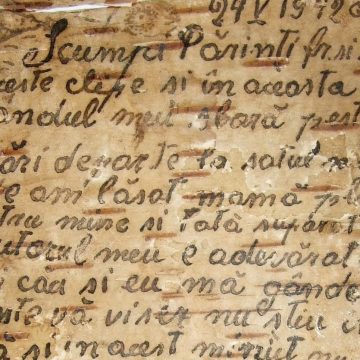 24 V 1942
Scumpi Părinti
este clipe si în aceasta
gândul meu sboară pes
ări departe la satul
e am lăsat mamă pl
tru mine si tată supărat
utorul meu e adevărat
i căci si eu mă gânde
nte vă visez nu stiu
ă si in acest minut